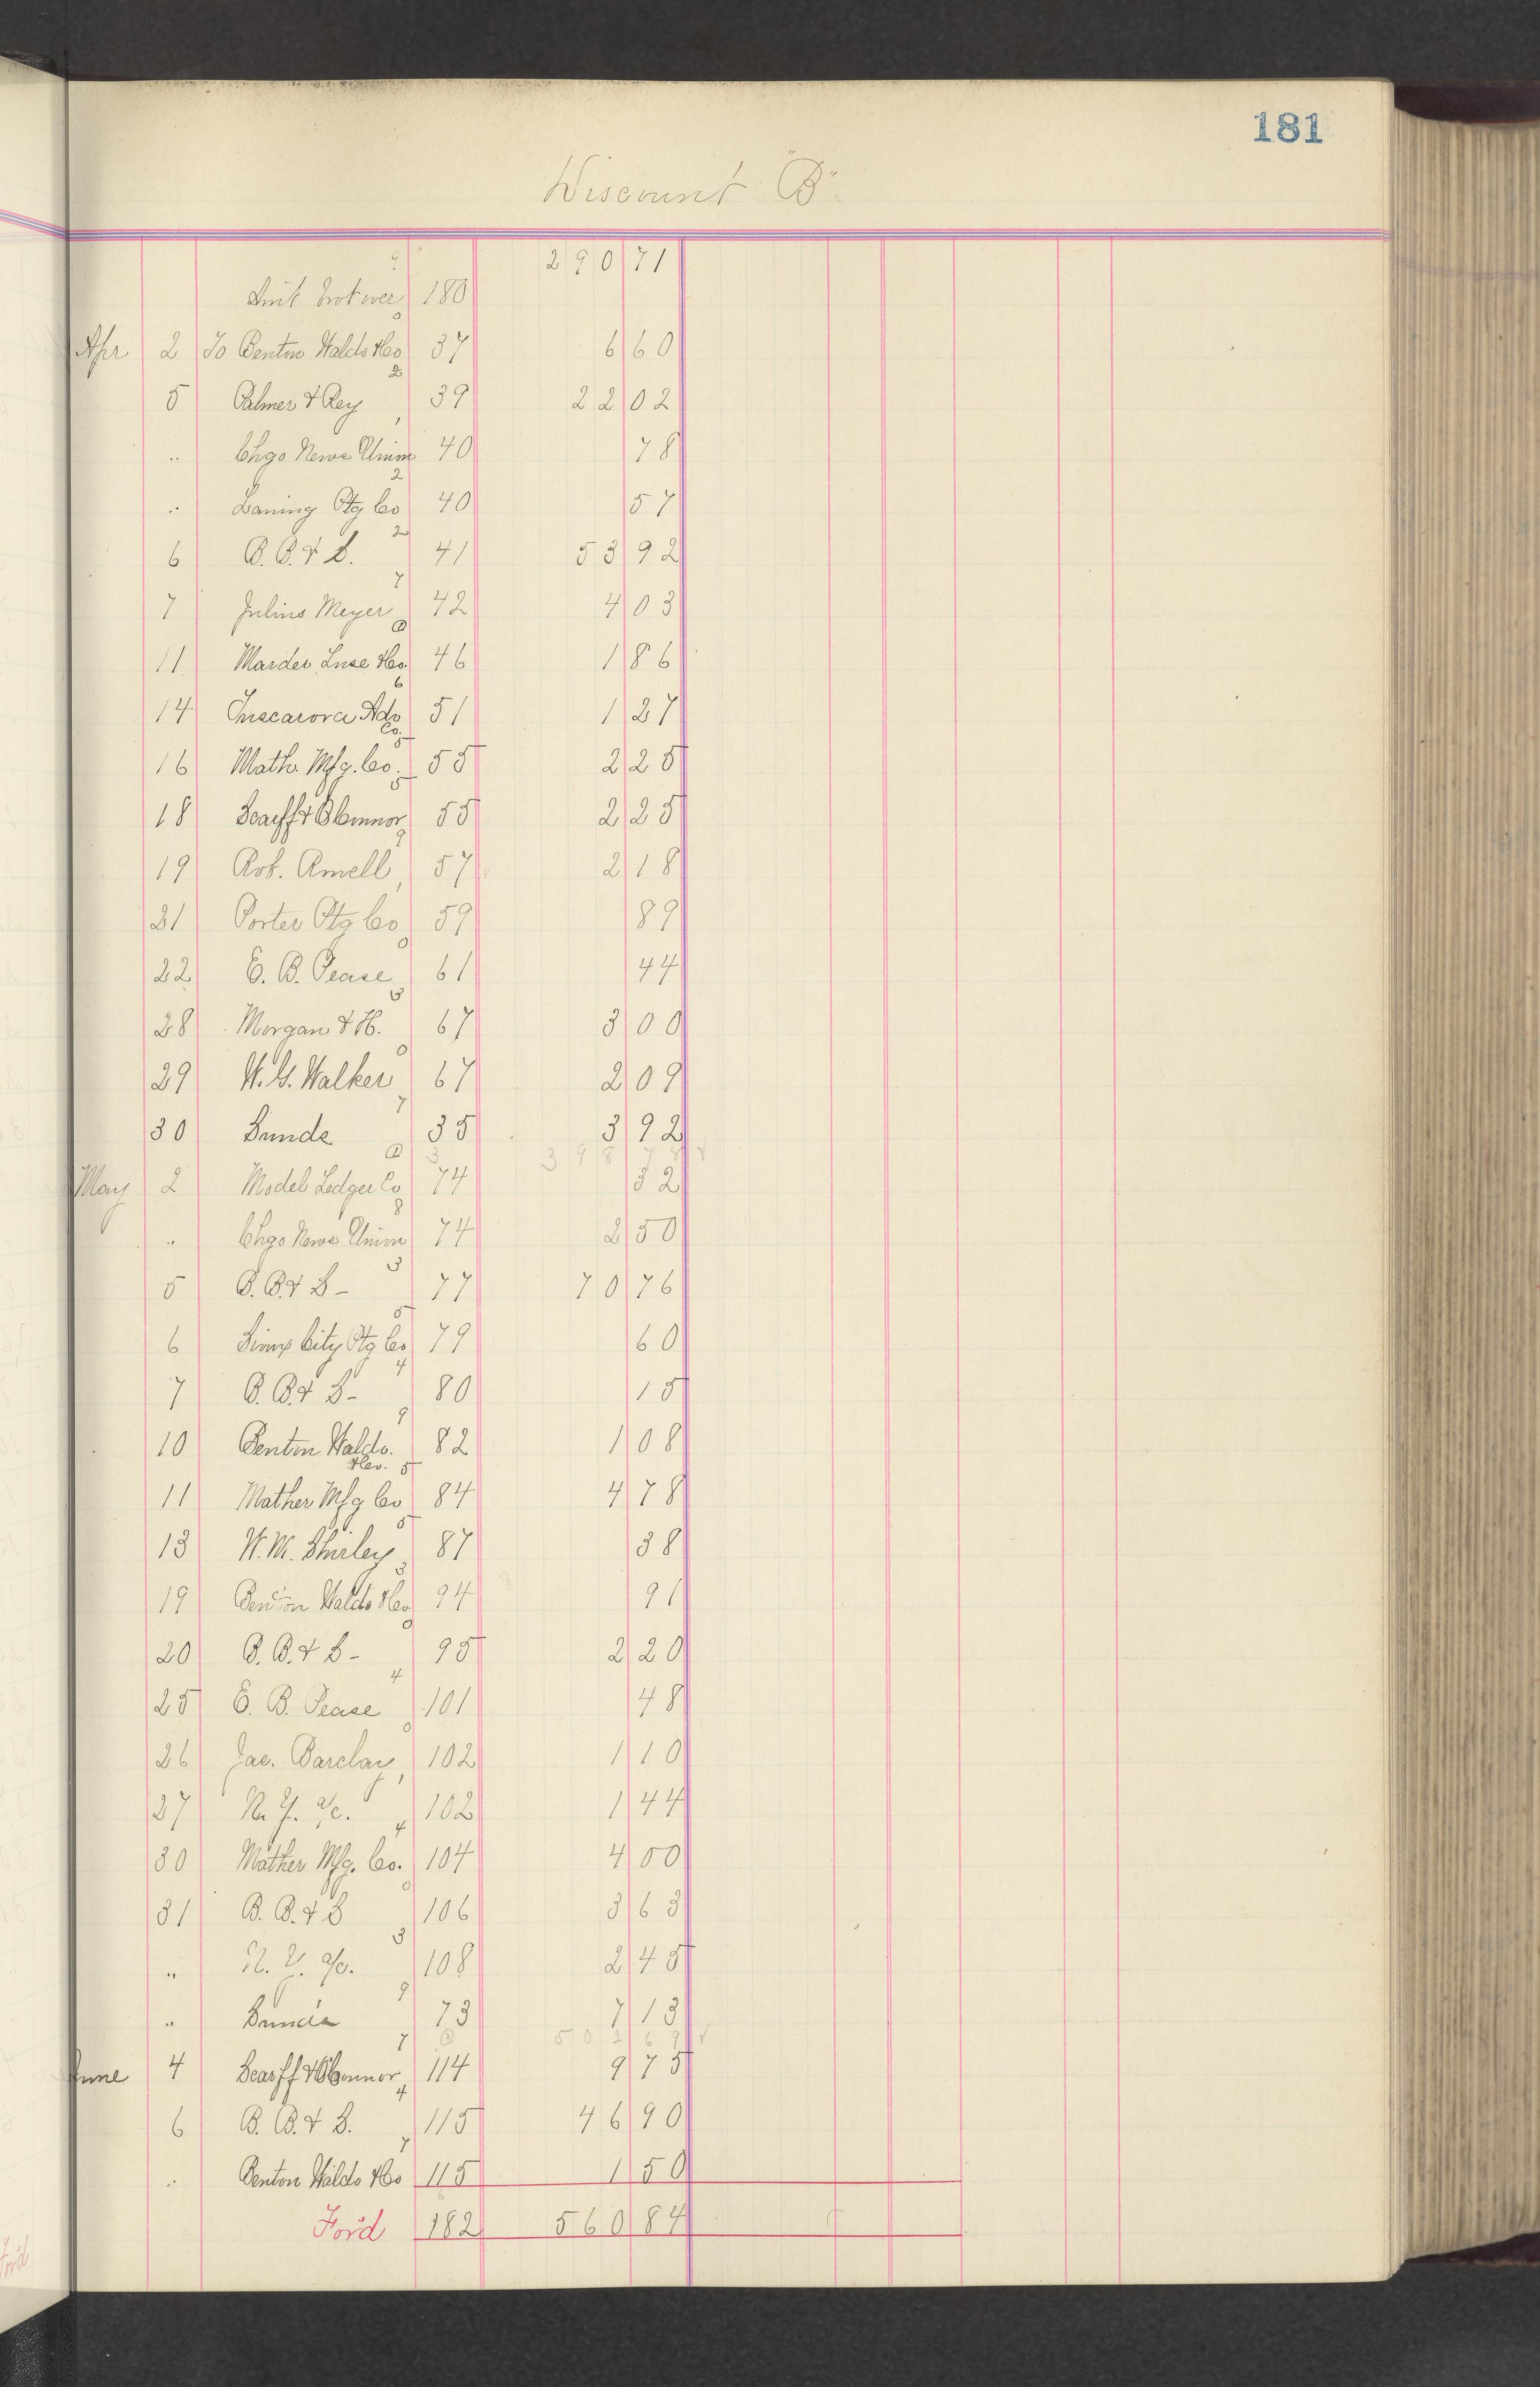 181
Discount "B"
290 71
Amt brot over 180
Apr 2 To Benton Waldo & Co 37 6 60
5 Palmer & Rey 39 22 02
" Chgo News Union 40 78
" Laning Ptg Co 40 57
6 B. B. & S. 41 53 92
7 Julius Meyer 42 4 03
11 Marder Luse & Co. 46 1 86
14 Tuscarora Adv Co. 51 1 27
16 Math. Mfg. Co. 55 2 25
18 Scarff & O'Connor 55 2 25
19 Rob. Amell 57 2 18
21 Porter Ptg Co 59 89
22 E. B. Pease 61 44
28 Morgan & H. 67 3 00
29 W. G. Walker 67 2 09
30 Sunds 35 3 92
398 78
May 2 Model Ledger Co 74 32
" Chgo News Union 74 2 50
5 B. B. & S - 77 70 76
6 Sioux City Ptg Co 79 60
7 B. B. & S - 80 15
10 Benton Waldo. & Co. 82 1 08
11 Mather Mfg Co 84 4 78
13 W. M. Shirley 87 38
19 Benton Waldo & Co 94 91
20 B. B. & S - 95 2 20
25 E. B. Pease 101 48
26 Jac. Barclay 102 1 10
27 N. Y. a/c. 102 1 44
30 Mather Mfg. Co. 104 4 00
31 B. B. & S 106 3 63
" N. Y. a/c. 108 2 45
" Sunds 73 7 13
502 69
June 4 Scarff & O'Connor 114 9 75
6 B. B. & S. 115 46 90
" Benton Waldo & Co 115 1 50
For'd 182 560 84